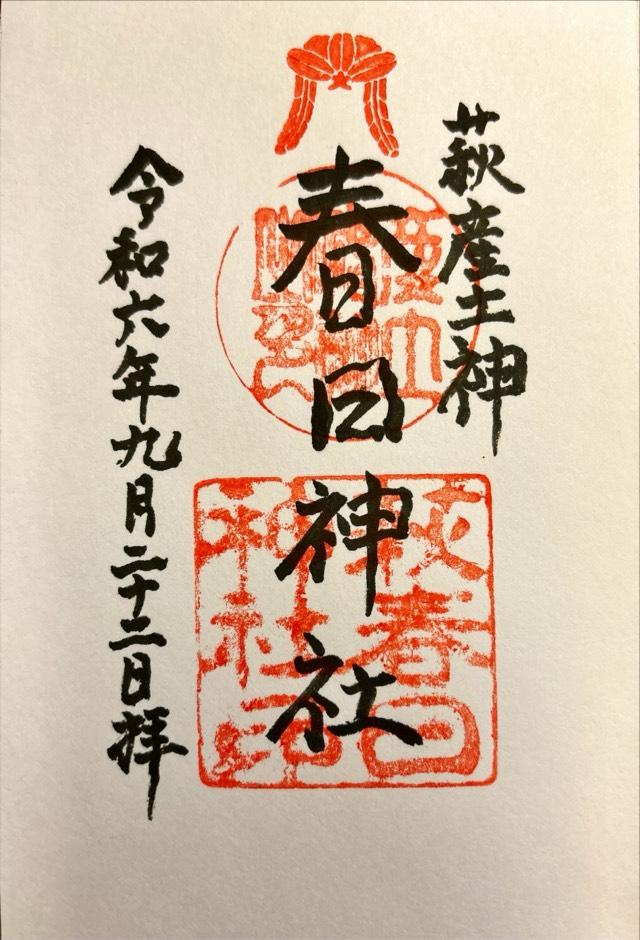 萩産土神
春日神社
令和六年九月二十二日拝
萩春日
神社印